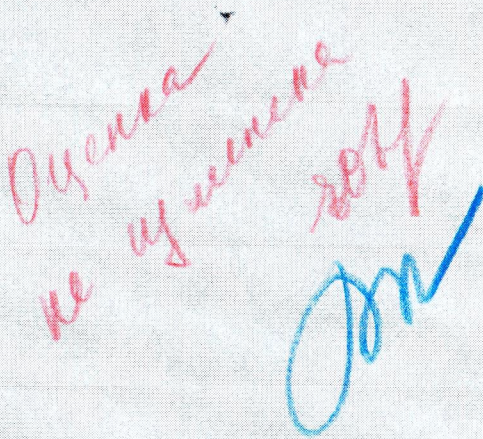 Оценка
не изменена